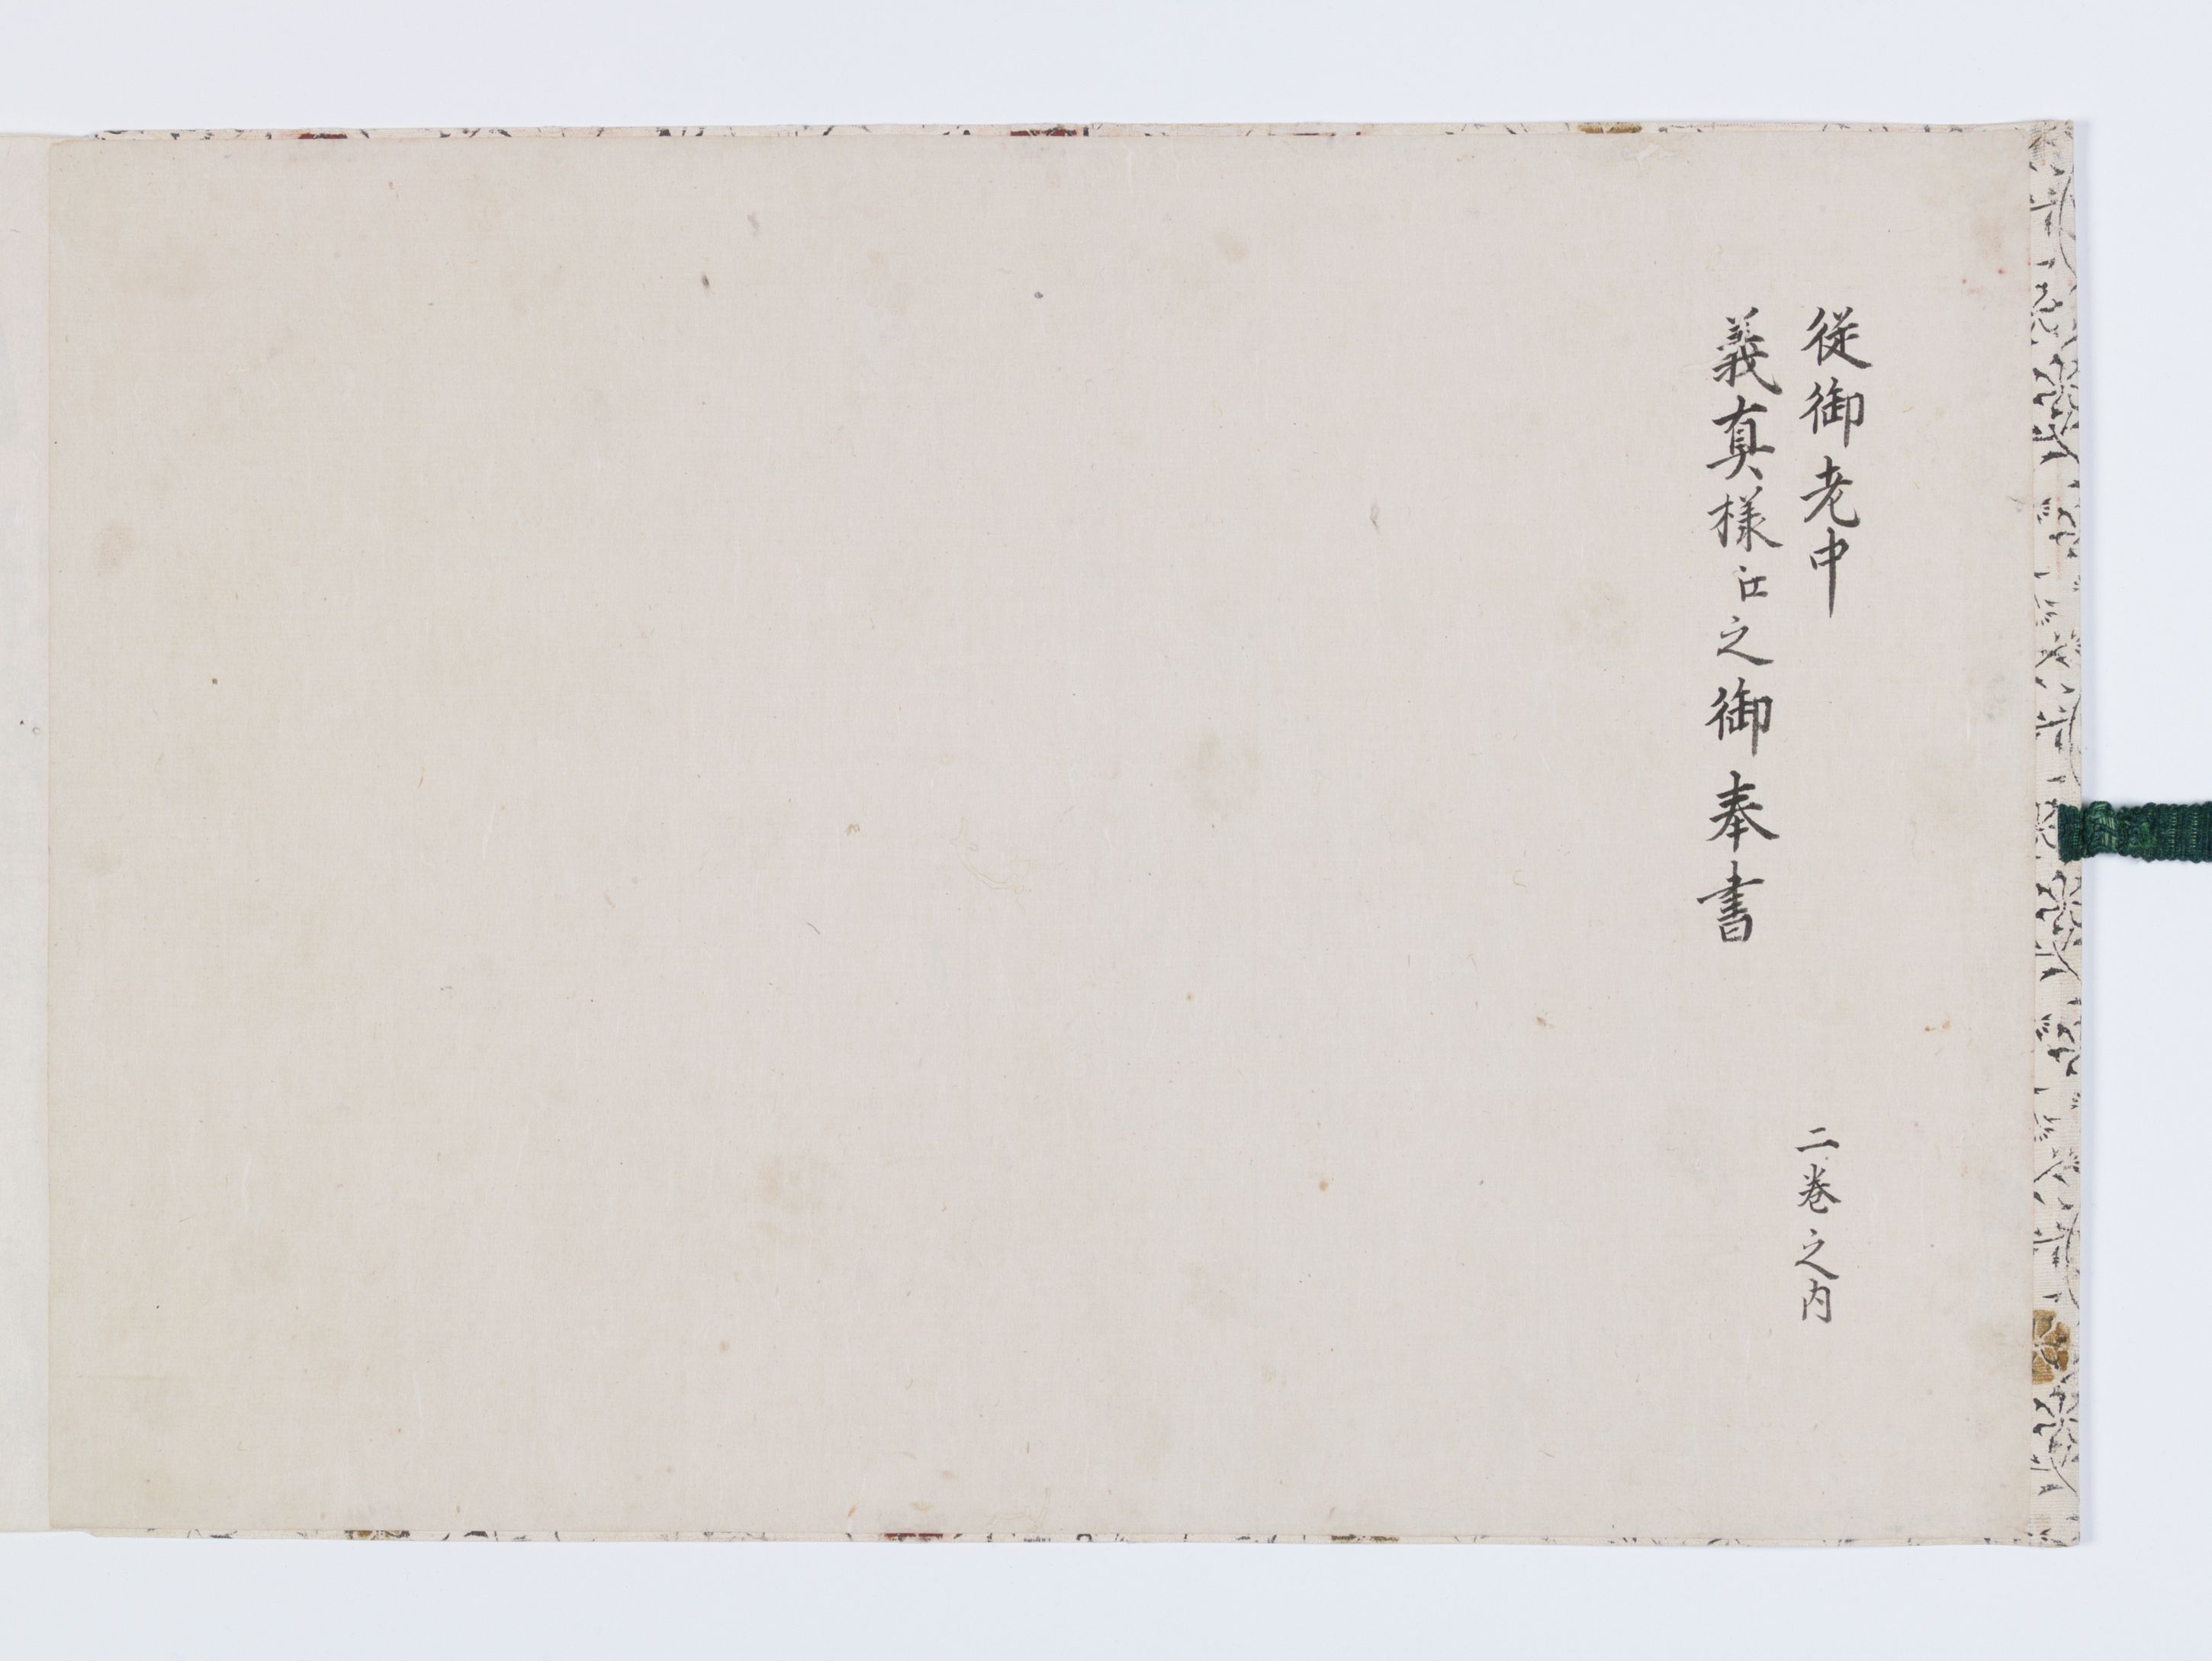 従御老中
義真様江之御奉書
二巻之内